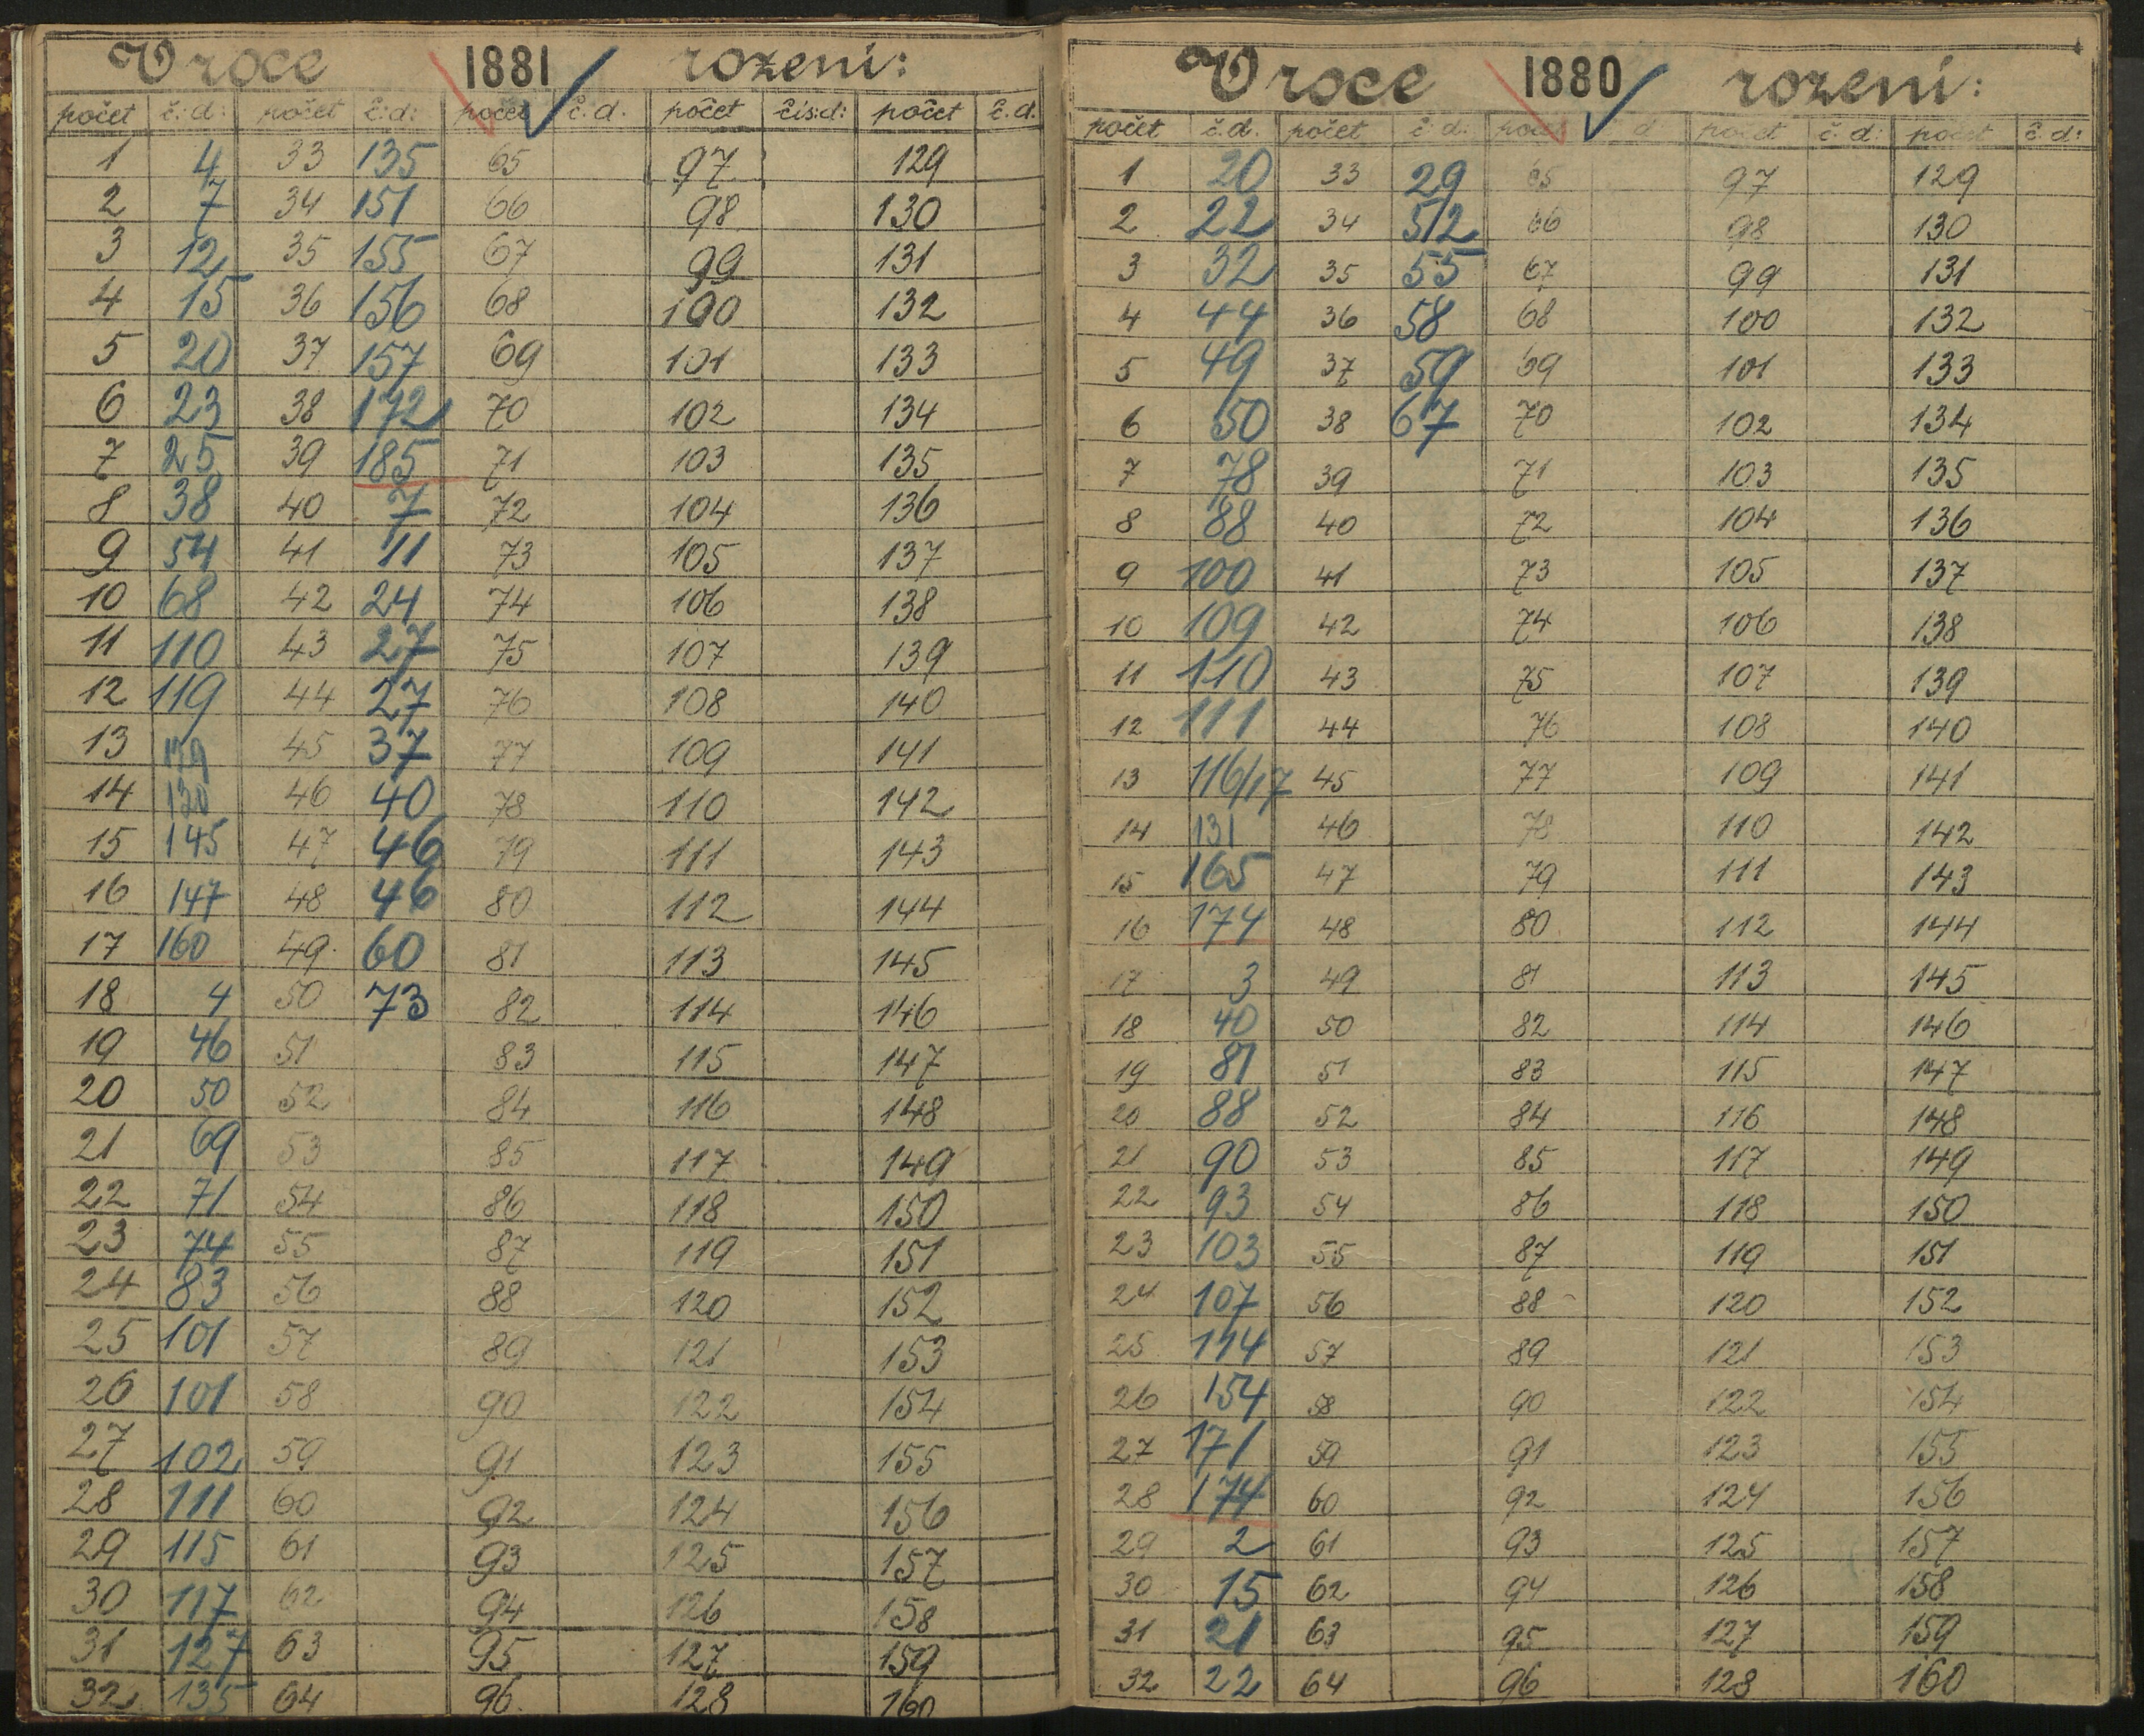 V roce 1881 rozeni:
počet č:d: počet č:d: počet č.d. počet čís:d: počet č.d.
1 4 33 135 65 97 129
2 7 34 151 66 98 130
3 12 35 155 67 99 131
4 15 36 156 68 100 132
5 20 37 157 69 101 133
6 23 38 172 70 102 134
7 25 39 185 71 103 135
8 38 40 7 72 104 136
9 54 41 11 73 105 137
10 68 42 24 74 106 138
11 110 43 27 75 107 139
12 119 44 27 76 108 140
13 45 37 77 109 141
14 46 40 78 110 142
15 145 47 46 79 111 143
16 147 48 46 80 112 144
17 160 49 60 81 113 145
18 4 50 73 82 114 146
19 46 51 83 115 147
20 50 52 84 116 148
21 69 53 85 117 149
22 71 54 86 118 150
23 74 55 87 119 151
24 83 56 88 120 152
25 101 57 89 121 153
26 101 58 90 122 154
27 102 59 91 123 155
28 111 60 92 124 156
29 115 61 93 125 157
30 117 62 94 126 158
31 127 63 95 127 159
32 135 64 96 128 160
V roce 1880 rozeni:
počet č.d. počet č:d: počet d počet č.d: počet č:d:
1 20 33 29 65 97 129
2 22 34 52 66 98 130
3 32 35 55 67 99 131
4 44 36 58 68 100 132
5 49 37 59 69 101 133
6 50 38 67 70 102 134
7 78 39 71 103 135
8 88 40 72 104 136
9 100 41 73 105 137
10 109 42 74 106 138
11 110 43 75 107 139
12 111 44 76 108 140
13 116/17 45 77 109 141
14 131 46 78 110 142
15 165 47 79 111 143
16 174 48 80 112 144
17 3 49 81 113 145
18 40 50 82 114 146
19 81 51 83 115 147
20 88 52 84 116 148
21 90 53 85 117 149
22 93 54 86 118 150
23 103 55 87 119 151
24 107 56 88 120 152
25 114 57 89 121 153
26 154 58 90 122 154
27 171 59 91 123 155
28 174 60 92 124 156
29 2 61 93 125 157
30 15 62 94 126 158
31 21 63 95 127 159
32 22 64 96 128 160